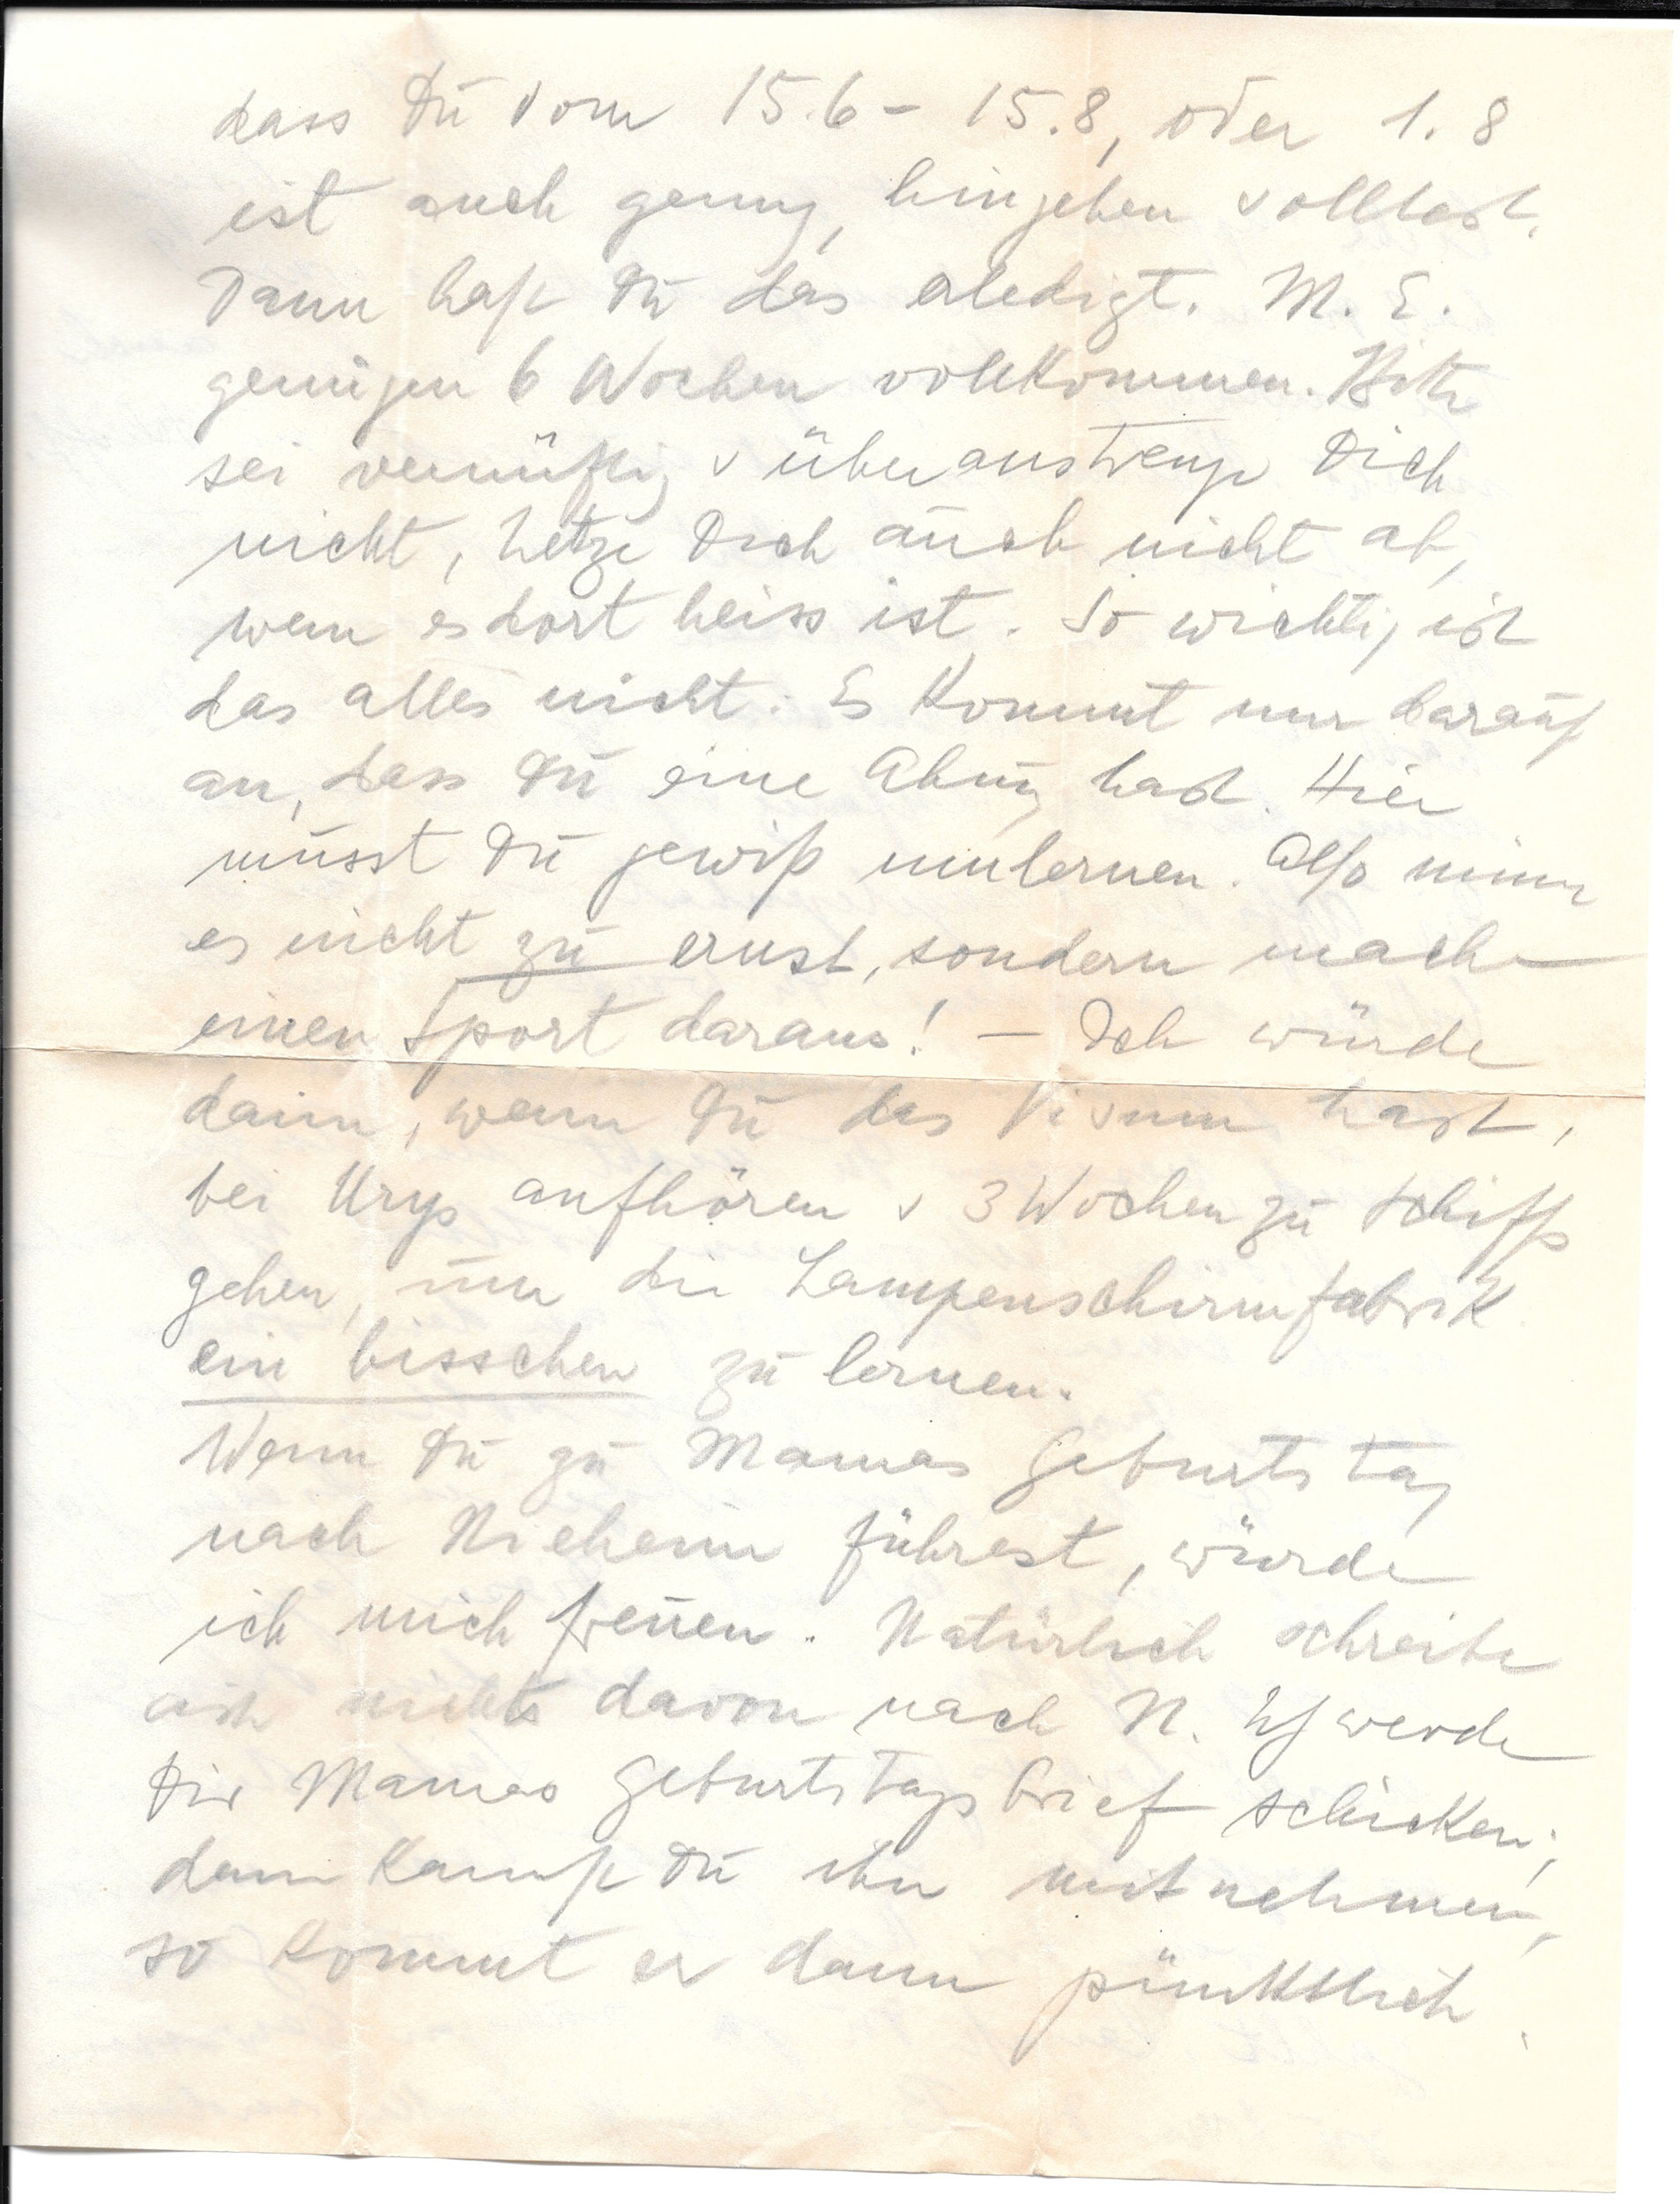 dass Du vom 15.6 - 15.8, oder 1. 8
ist auch genug, hingehen solltest.
Dann hast Du das erledigt. M. E.
genügen 6 Wochen vollkommen. Bitte
sei vernünftig u überanstrenge Dich
nicht, hetze Dich auch nicht ab,
wenn es dort heiss ist. So wichtig ist
das alles nicht. Es kommt nur darauf
an, dass Du eine Ahnung hast. Hier
musst Du gewiß umlernen. Also nimm
es nicht zu ernst, sondern mache
einen Sport daraus! — Ich würde
dann, wenn Du das Visum hast,
bei Urys aufhören u 3 Wochen zu Schiffs
gehen, um die Lampenschirmfabrik.
ein bisschen zu lernen.
Wenn Du zu Mamas Geburtstag
nach Nieheim führest, würde
ich mich freuen. Natürlich schreibe
ich nichts davon nach N. Ich werde
Dir Mamas Geburtstagsbrief schicken;
dann kannst Du ihn mitnehmen,
so kommt er dann pünktlich.